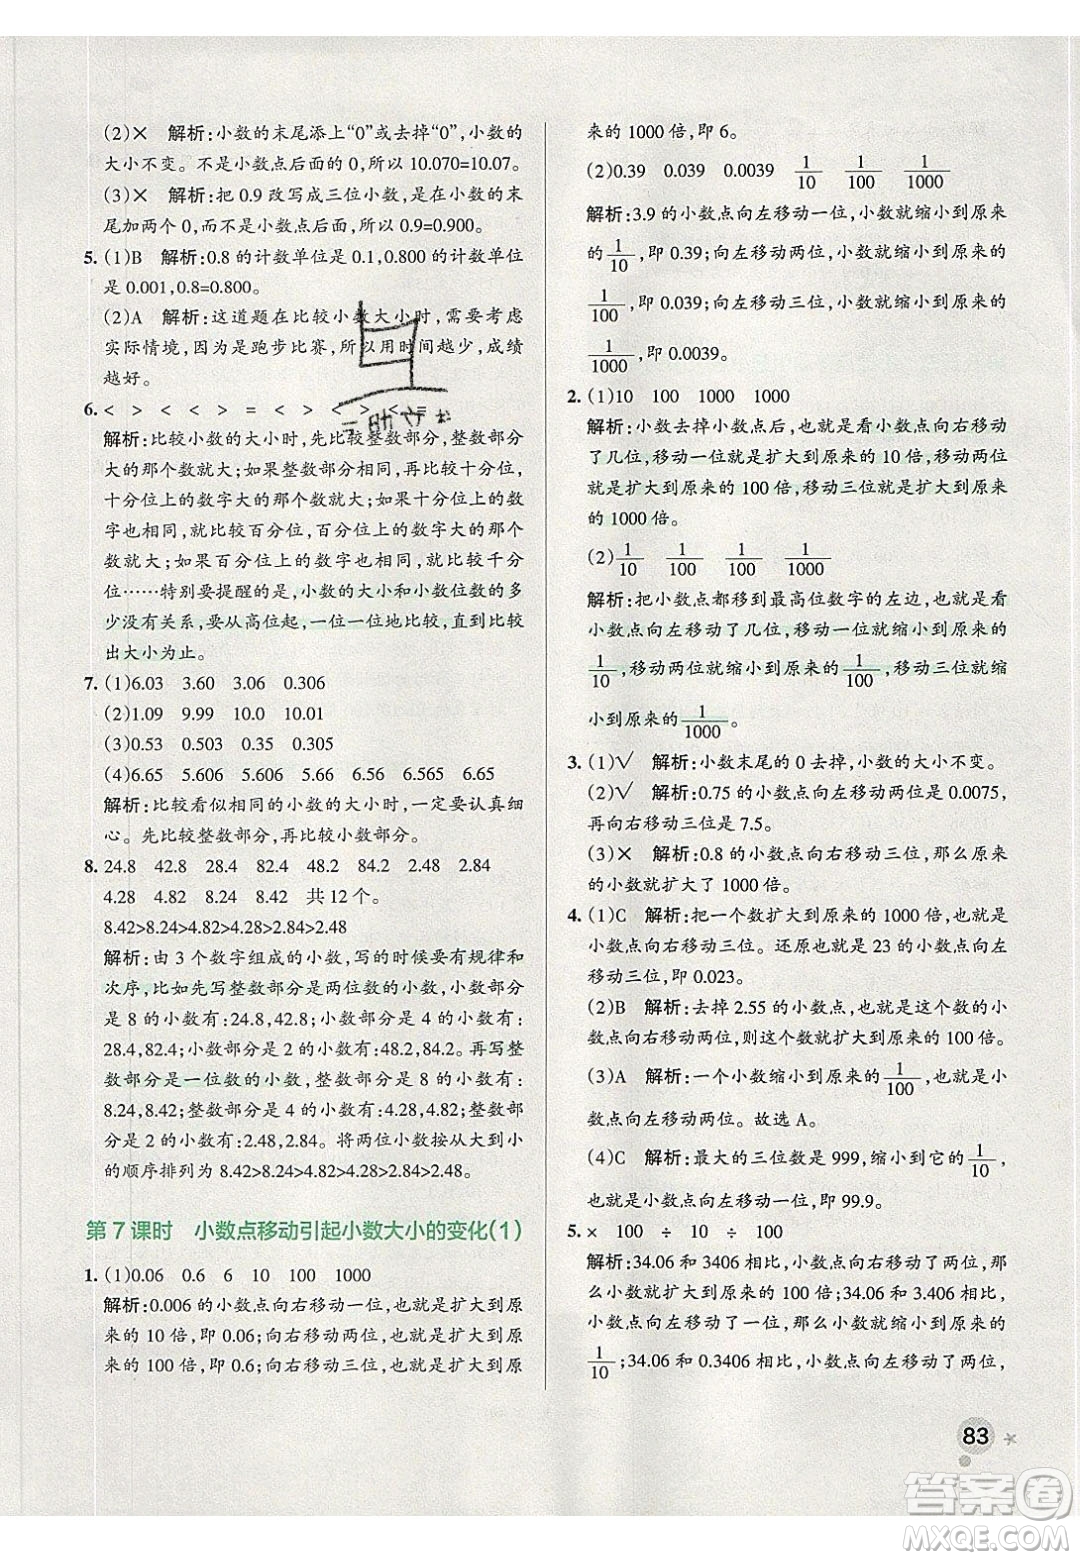 (2)× 解析:小数的末尾添上“0”或去掉“0”,小数的
大小不变。不是小数点后面的0,所以10.070=10.07。
(3)× 解析:把0.9改写成三位小数,是在小数的末
尾加两个0,而不是小数点后面,所以0.9=0.900。
5. (1)B 解析:0.8的计数单位是0.1,0.800的计数单位
是0.001,0.8=0.800。
(2)A 解析:这道题在比较小数大小时,需要考虑
实际情境,因为是跑步比赛,所以用时间越少,成绩
越好。
6. < > < < > = < > < > < =
解析:比较小数的大小时,先比较整数部分,整数部分
大的那个数就大;如果整数部分相同,再比较十分位,
十分位上的数字大的那个数就大;如果十分位上的数
字也相同,就比较百分位,百分位上的数字大的那个
数就大;如果百分位上的数字也相同,就比较千分
位……特别要提醒的是,小数的大小和小数位数的多
少没有关系,要从高位起,一位一位地比较,直到比较
出大小为止。
7. (1)6.03 3.60 3.06 0.306
(2)1.09 9.99 10.0 10.01
(3)0.53 0.503 0.5 0.35
(4)6.65 6.606 6.56 6.565 6.65
解析:比较看似相同的小数的大小时,一定要认真细
心。先比较整数部分,再比较小数部分。
8. 24.8 42.8 28.4 82.4 48.2 84.2 2.48 2.84
4.28 4.82 8.24 8.42 共12个。
8.42>8.24>4.82>4.28>2.84>2.48
解析:由3个数字组成的小数,写的时候要有规律和
次序,比如先写整数部分是两位数的小数,小数部分
是8的小数有:24.8,42.8;小数部分是4的小数有:
28.4,82.4;小数部分是2的小数有:48.2,84.2。再写整
数部分是一位数的小数,整数部分是8的小数有:
8.24,8.42;整数部分是4的小数有:4.28,4.82;整数部
分是2的小数有:2.48,2.84。将两位小数按从大到小
的顺序排列为8.42>8.24>4.82>4.28>2.84>2.48。
第7课时 小数点移动引起小数大小的变化(1)
1. (1)0.06 0.6 6 10 100 1000
解析:0.006的小数点向右移动一位,也就是扩大到原
来的10倍,即0.06;向右移动两位,也就是扩大到原
来的100倍,即0.6;向右移动三位,也就是扩大到原
来的1000倍,即6。
(2)0.39 0.039 0.0039 1/10 1/100 1/1000
解析:3.9的小数点向左移动一位,小数就缩小到原来
的1/10,即0.39;向左移动两位,小数就缩小到原来的
1/100,即0.039;向左移动三位,小数就缩小到原来的
1/1000,即0.0039。
2. (1)10 100 1000 1000
解析:小数去掉小数点后,也就是看小数点向右移动
了几位,移动一位就是扩大到原来的10倍,移动两位
就是扩大到原来的100倍,移动三位就是扩大到原来
的1000倍。
(2)1/10 1/100 1/100 1/1000
解析:把小数点都移到最高位数字的左边,也就是看
小数点向左移动了几位,移动一位就缩小到原来的
1/10,移动两位就缩小到原来的1/100,移动三位就缩
小到原来的1/1000。
3. (1)√ 解析:小数末尾的0去掉,小数的大小不变。
(2)√ 解析:0.75的小数点向左移动两位是0.0075,
再向右移动三位是7.5。
(3)× 解析:0.8的小数点向右移动三位,那么原来
的小数就扩大了1000倍。
4. (1)C 解析:把一个数扩大到原来的1000倍,也就是
小数点向右移动三位。还原也就是23的小数点向左
移动三位,即0.023。
(2)B 解析:去掉2.55的小数点,也就是这个数的小
数点向右移动两位,则这个数就扩大到原来的100倍。
(3)A 解析:一个小数缩小到原来的1/100,也就是小
数点向左移动两位。故选A。
(4)C 解析:最大的三位数是999,缩小到它的1/10,
也就是小数点向左移动一位,即99.9。
5. × 100 ÷ 10 ÷ 100
解析:34.06和3406相比,小数点向右移动两位,那么
小数就扩大到原来的100倍;34.06和3.406相比,
小数点向左移动了一位,那么小数就缩小到原来的
1/10;34.06和0.3406相比,小数点向左移动了两位,
83
答案圈
MXQE.COM